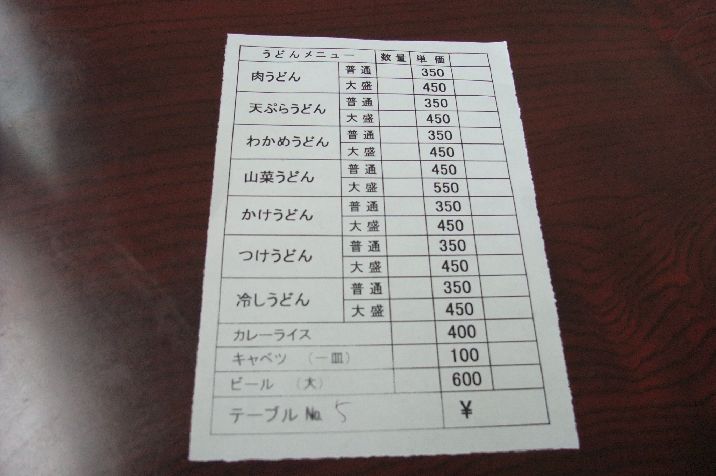 うどんメニュー 数量 単価
肉うどん 普通 350
大盛 450
天ぷらうどん 普通 350
大盛 450
わかめうどん 普通 350
大盛 450
山菜うどん 普通 450
大盛 550
かけうどん 普通 350
大盛 450
つけうどん 普通 350
大盛 450
冷しうどん 普通 350
大盛 450
カレーライス 400
キャベツ （一皿） 100
ビール （大） 600
テーブル№ 5 ¥